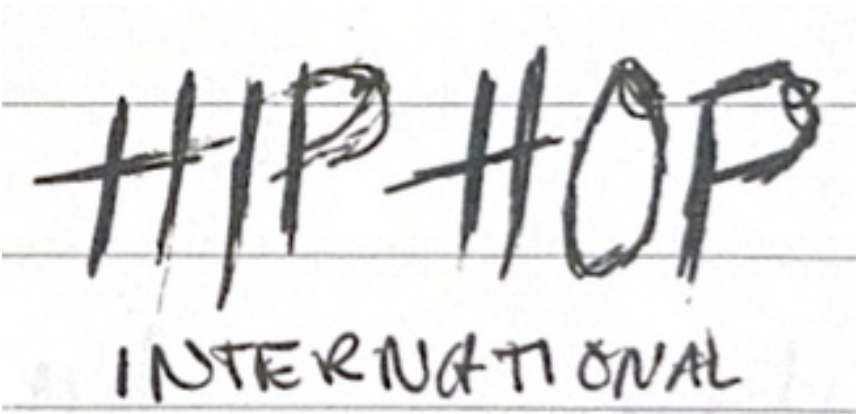 HIP HOP
INTERNATIONAL